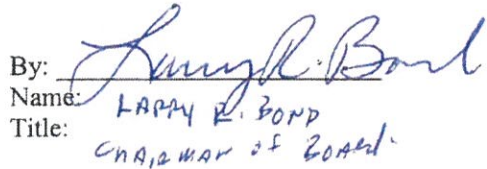 By: Larry R. Bond
Name: LARRY R. BOND
Title: CHAIRMAN OF BOARD.